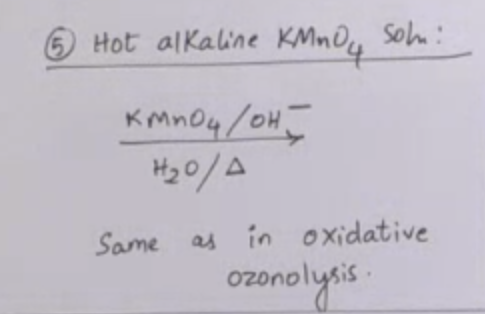 ⑤ Hot alkaline KMnO₄ Soln:
KMnO₄/OH⁻
H₂O/Δ
Same as in oxidative
ozonolysis.